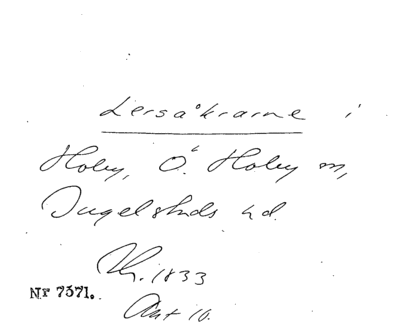 Lersåkrarne i
Holby, Ö. Hoby sn,
Ingelstads hd.
Th. 1833
Akt 10.
Nr 7371.